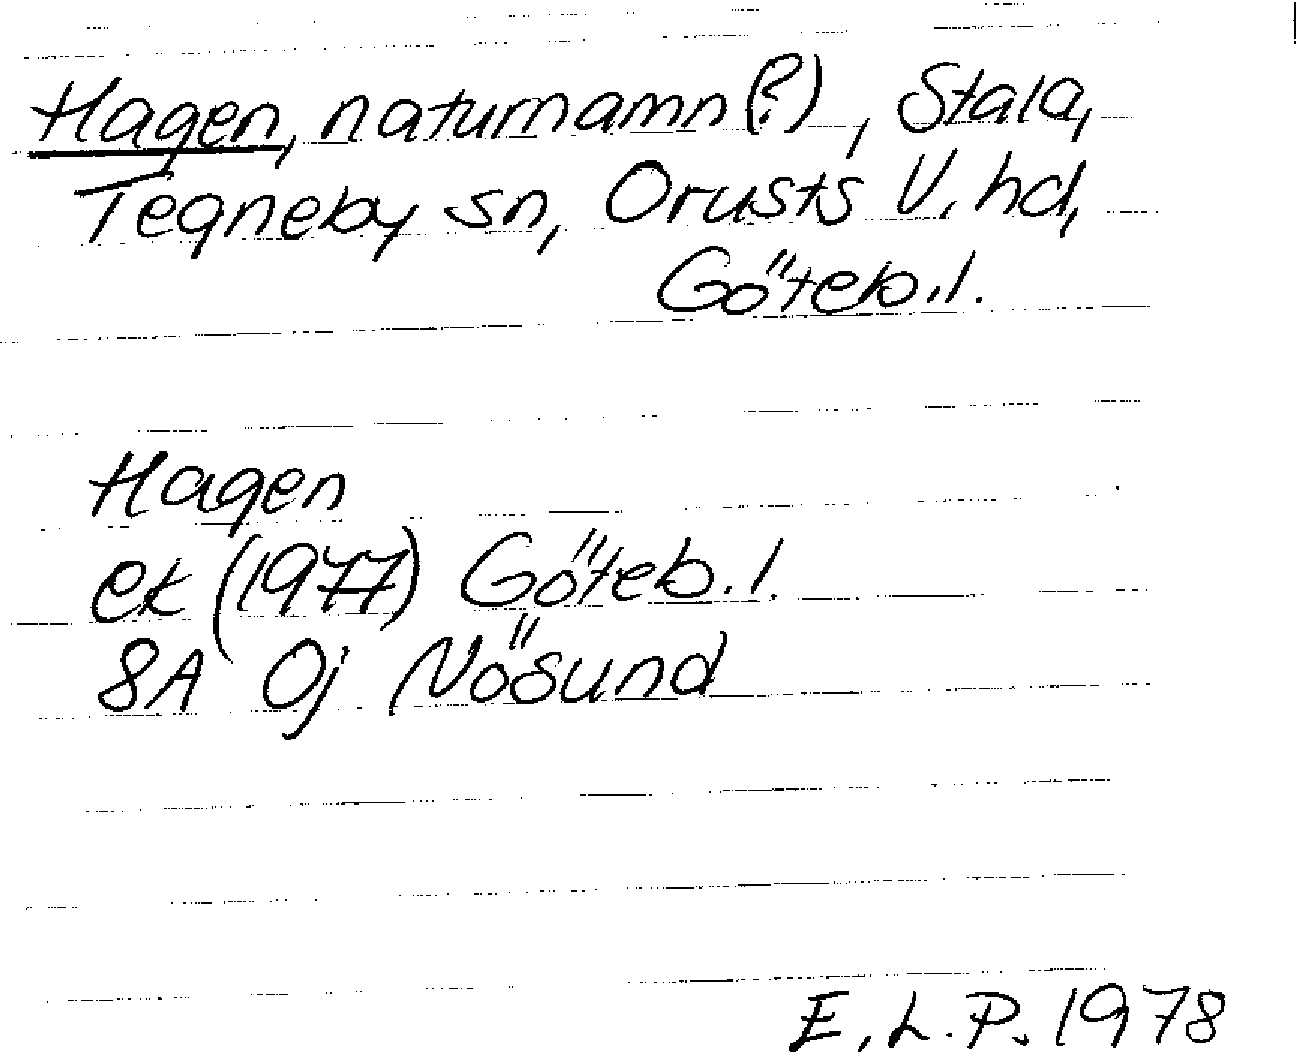 Hagen, naturnamn (?), Stala,
Tegneby sn, Orusts V. hd,
Göteb. l.
Hagen
ek (1977) Göteb. l.
8A 0j Nösund
E. L. P. 1978